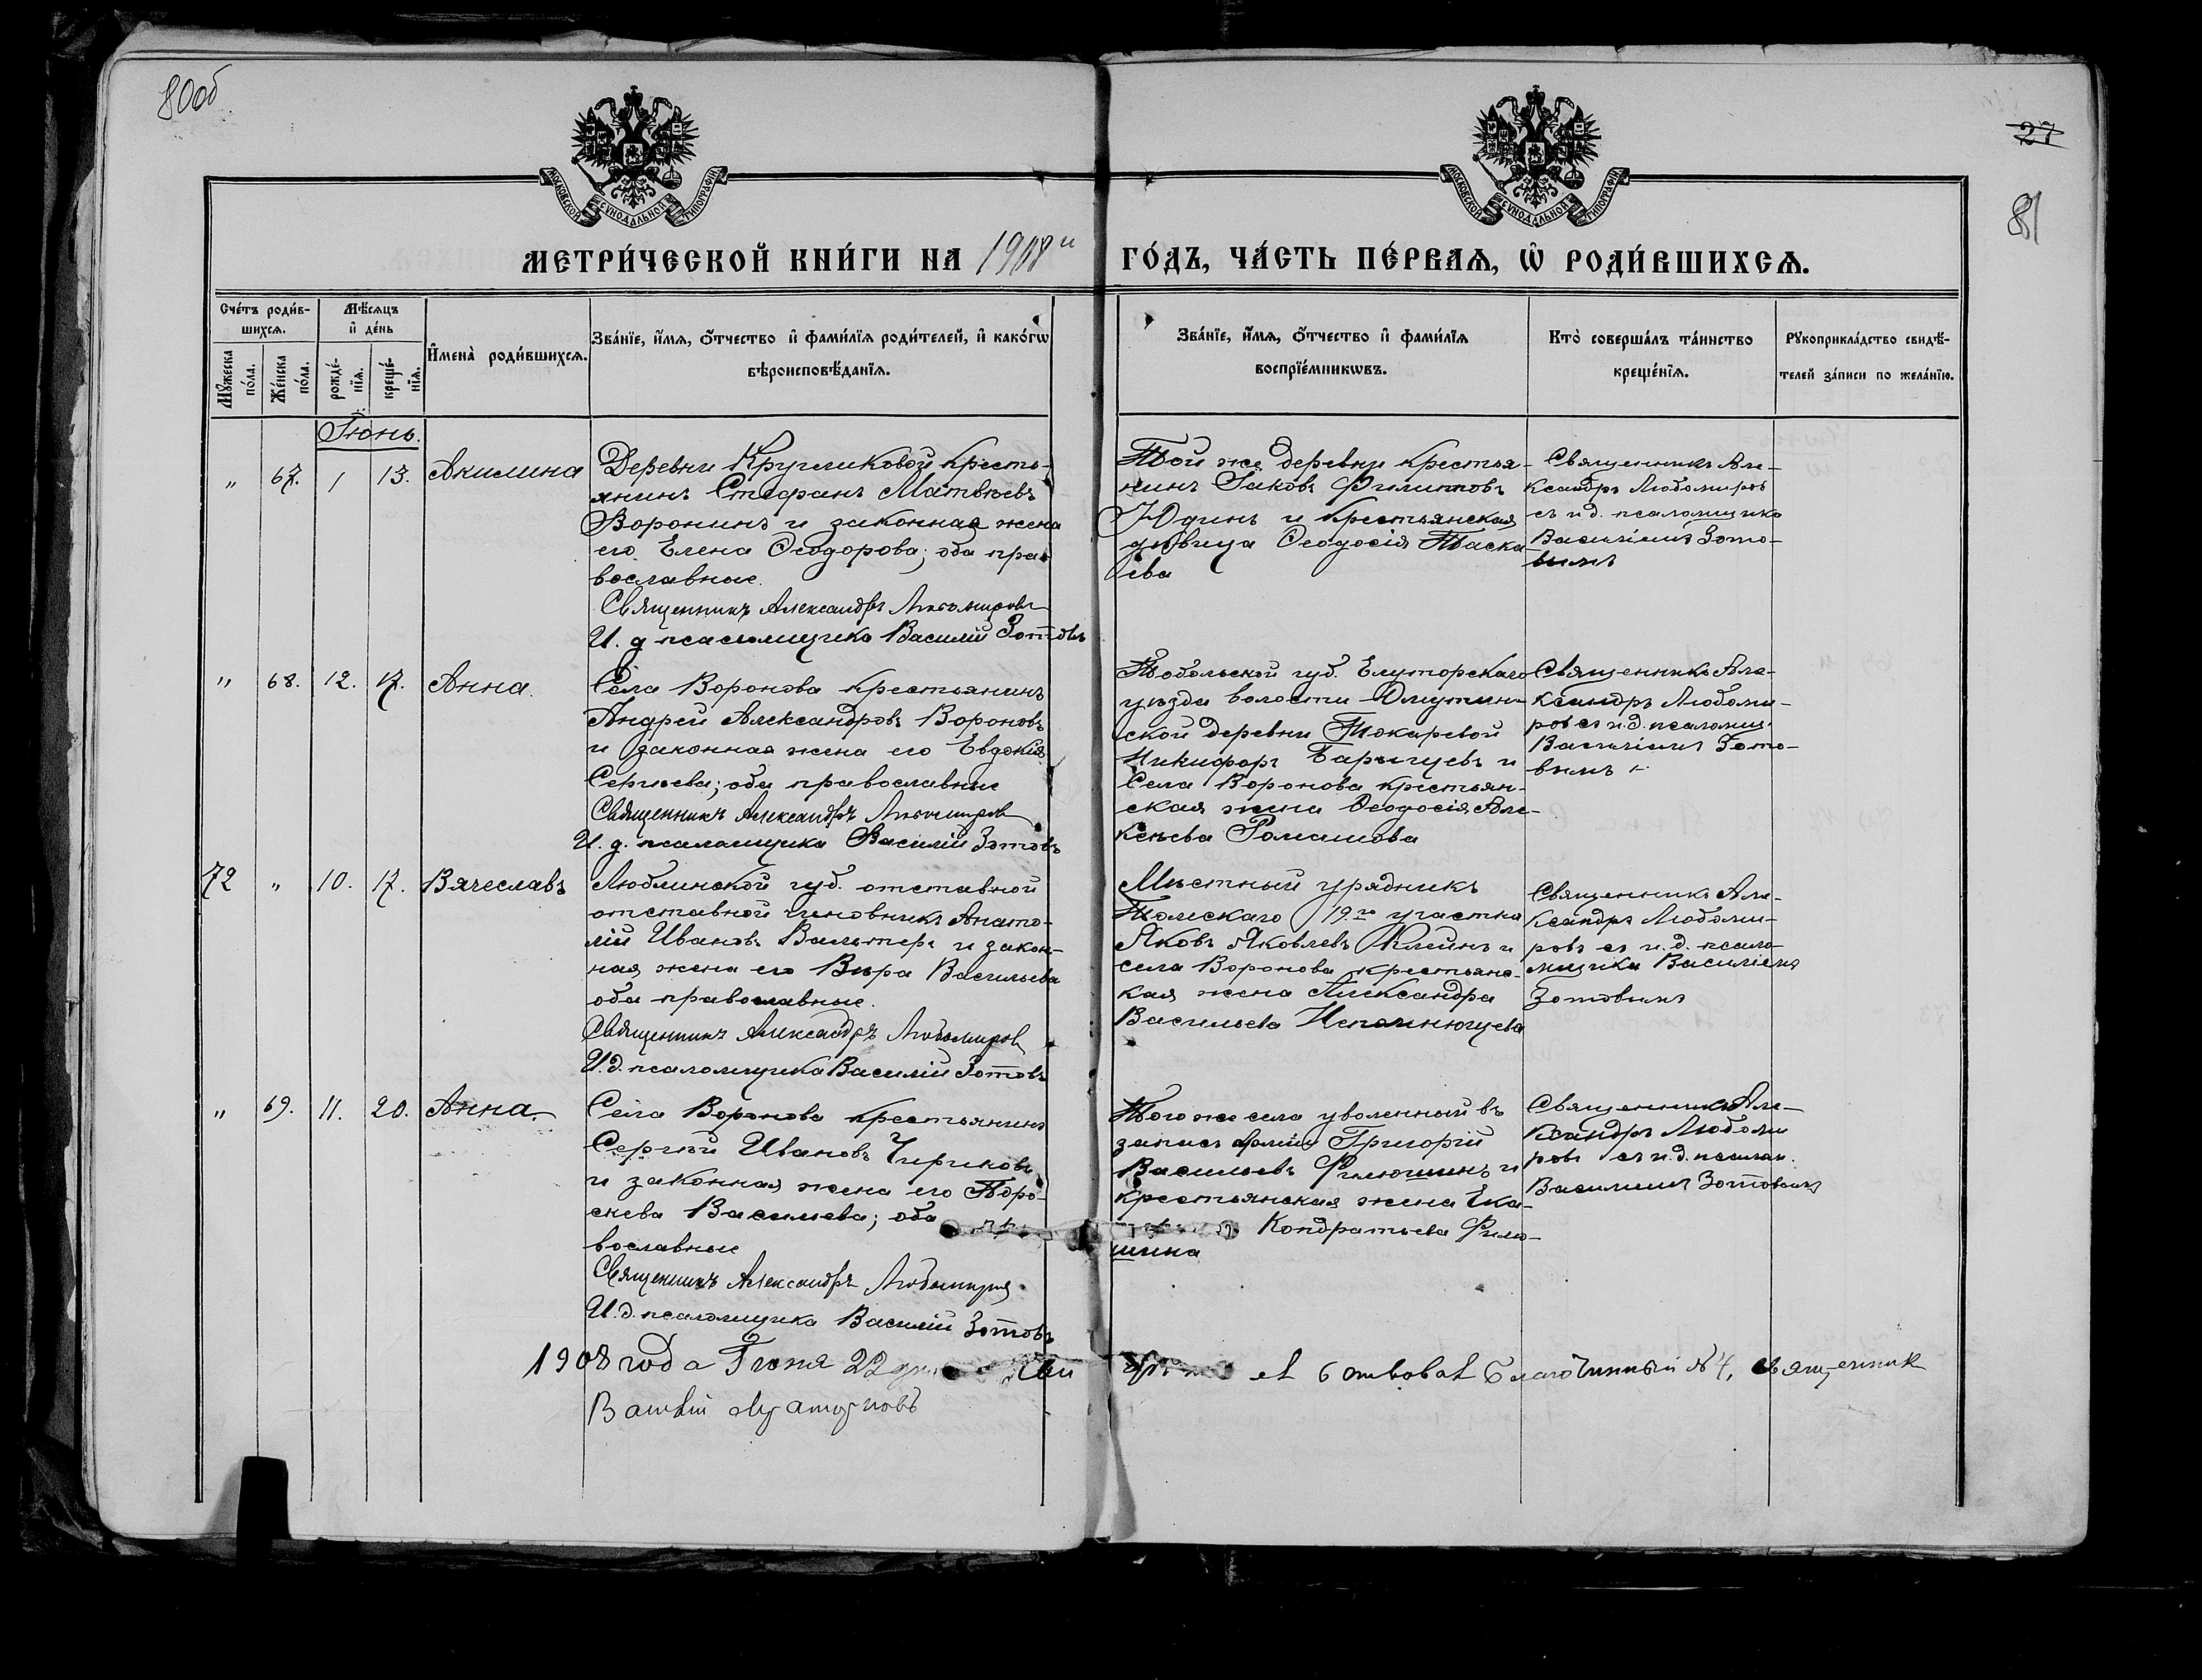 80об
27
81
МОСКОВСКОЙ СѴНОДАЛЬНОЙ ТИПОГРАФІИ
МОСКОВСКОЙ СѴНОДАЛЬНОЙ ТИПОГРАФІИ
МЕТРИ́ЧЕСКОЙ КНИ́ГИ НА 1908й ГО́ДЪ, ЧА́СТЬ ПЕ́РВАѦ, Ѡ҆ РОДИ́ВШИХСѦ.
Сче́тъ роди́в-
шихсѧ.
Мꙋжеска по́ла.
Же́нска по́ла.
Мѣ́сѧцъ
и҆ де́нь
рожде́-
нїѧ.
креще́-
нїѧ.
И҆мена̀ роди́вшихсѧ.
Зва́нїе, и҆́мѧ, ѻ҆́тчество и҆ фами́лїѧ роди́телей, и҆ како́гѡ
вѣроисповѣ́данїѧ.
Зва́нїе, и҆́мѧ, ѻ҆́тчество и҆ фами́лїѧ
воспрїе́мникѡвъ.
Кто̀ соверша́лъ та́инство
креще́нїѧ.
Рꙋкоприкла́дство свидѣ́-
телей за́писи по жела́нїю.
Іюнь.
" 67. 1 13. Акилина
Деревни Кругликовой кресть-
янинъ Стефанъ Матвѣевъ
Воронинъ и законная жена
его Елена Ѳеодорова; оба пра-
вославные.
Священникъ Александръ Любомировъ
И. д псаломщика Василій Зотовъ
Той же деревни крестья-
нинъ Іаковъ Филиповъ
Юдинъ и крестьянская
дѣвица Ѳеодосія Таска-
ева
Священникъ Але-
ксандръ Любомировъ
съ и.д. псаломщика
Василіемъ Зото-
вымъ
" 68. 12. 17. Анна.
Села Воронова крестьянинъ
Андрей Александровъ Вороновъ
и законная жена его Евдокія
Сергѣева; оба православные
Священникъ Александръ Любомировъ
И. д. псаломщика Василій Зотовъ
Тобольской губ. Елуторскаго
уѣзда волости Омутин-
ской деревни Токаревой
Никифоръ и
Села Воронова крестьян-
ская жена Ѳеодосія Але-
ксѣева Романова
Священникъ Але-
ксандръ Любоми-
ровъ съ и.д. псаломщ.
Василіемъ Зото-
вымъ
72 " 10. 17. Вячеславъ
Люблинской губ. отставной
отставной чиновникъ Анато-
лій Ивановъ Вальтеръ и закон-
ная жена его Вѣра Васильева
оба православные.
Священникъ Александръ Любомировъ
И.д. псаломщика Василій Зотовъ
Мѣстный урядникъ
Томскаго 19го участка
Яковъ Яковлевъ Клеинъ и
села Воронова крестьянс-
кая жена Александра
Васильева
Священникъ Але-
ксандръ Любоми-
ровъ съ и.д. псало-
мщика Василіемъ
Зотовымъ
" 69. 11. 20. Анна.
Села Воронова крестьянинъ
Сергѣй Ивановъ Чириковъ
и законная жена его
Василіева; оба пра-
вославные
Священникъ Александръ Любомировъ
И.д. псаломщика Василій Зотовъ
Того же села уволенный въ
запасъ арміи Григорій
Васильевъ Филюшинъ и
крестьянская жена Ека-
Кондратьева Филю-
шина
Священникъ Але-
ксандръ Любоми
ровъ съ и.д. псалом.
Василіемъ Зотовымъ
1908 года Іюня 22 Благочинный №4, священник